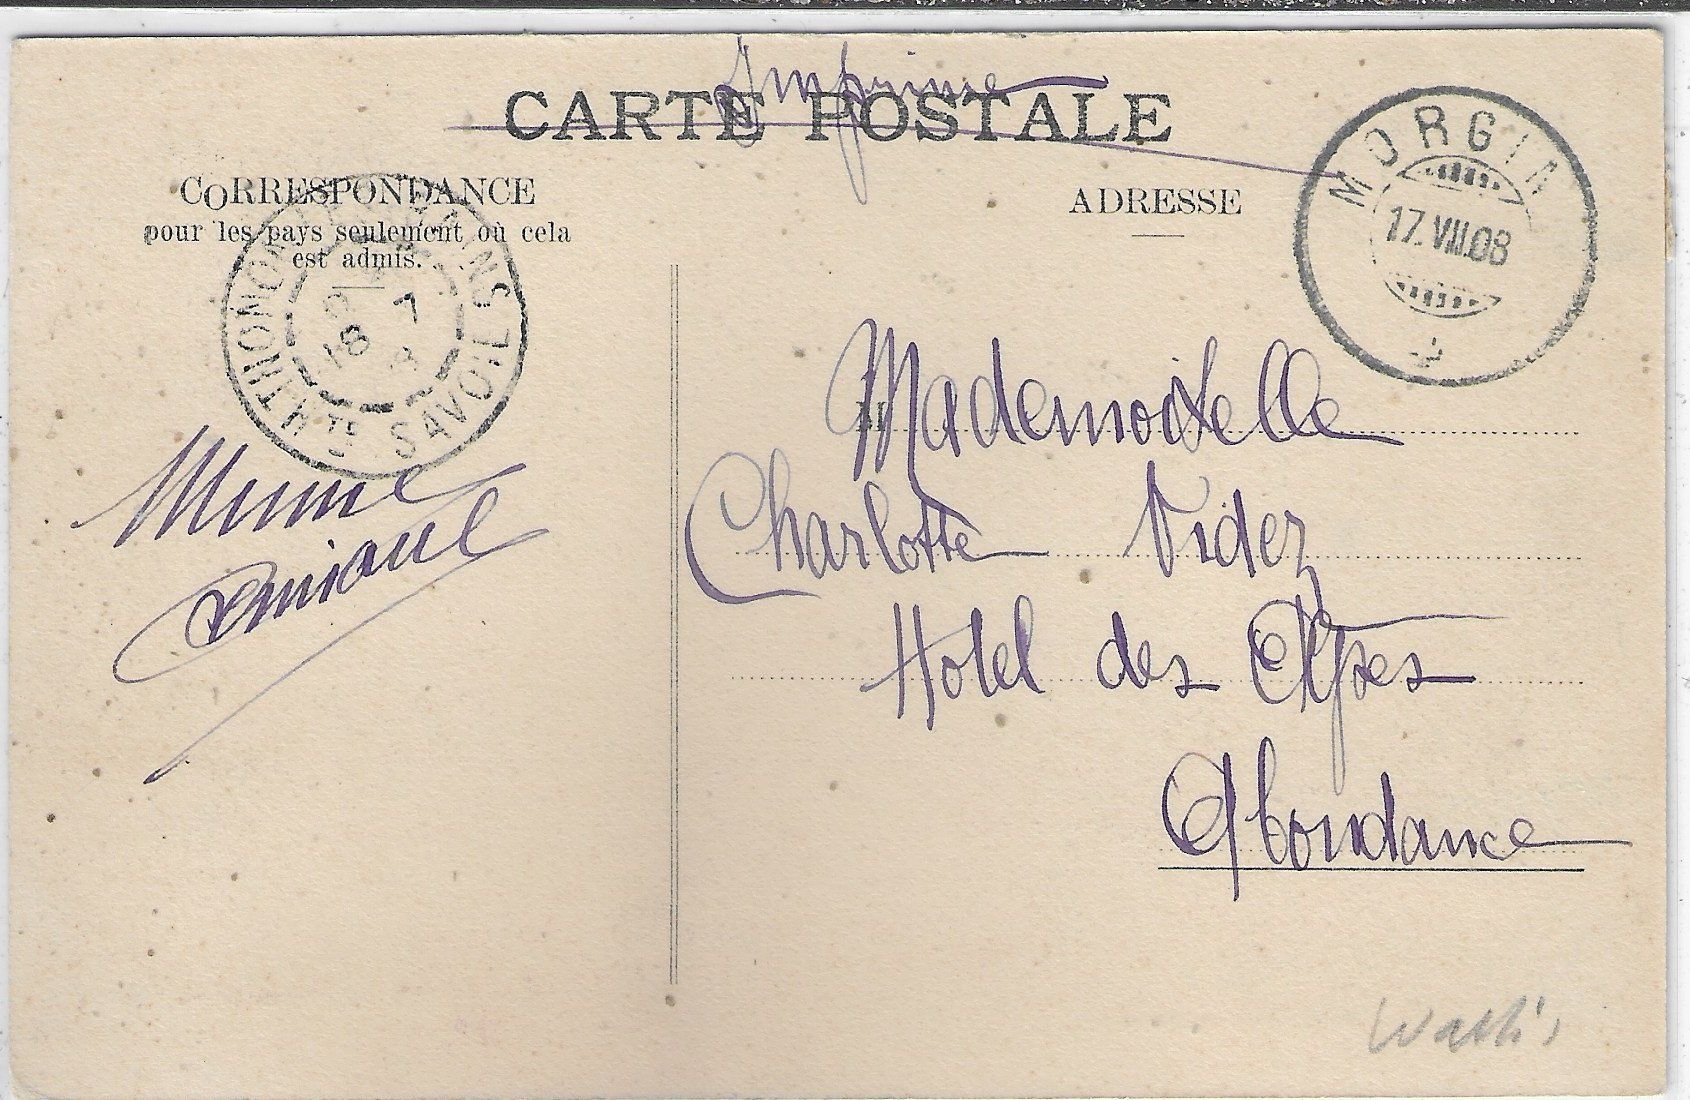 Imprimé
CARTE POSTALE
CORRESPONDANCE
pour les pays seulement où cela
est admis.
ADRESSE
MORGIN
17.VII.08
THONON-LES-BAINS
18 7
HTE SAVOIE
M
Mademoiselle
Charlotte Videz
Hotel des Alpes
Abondance